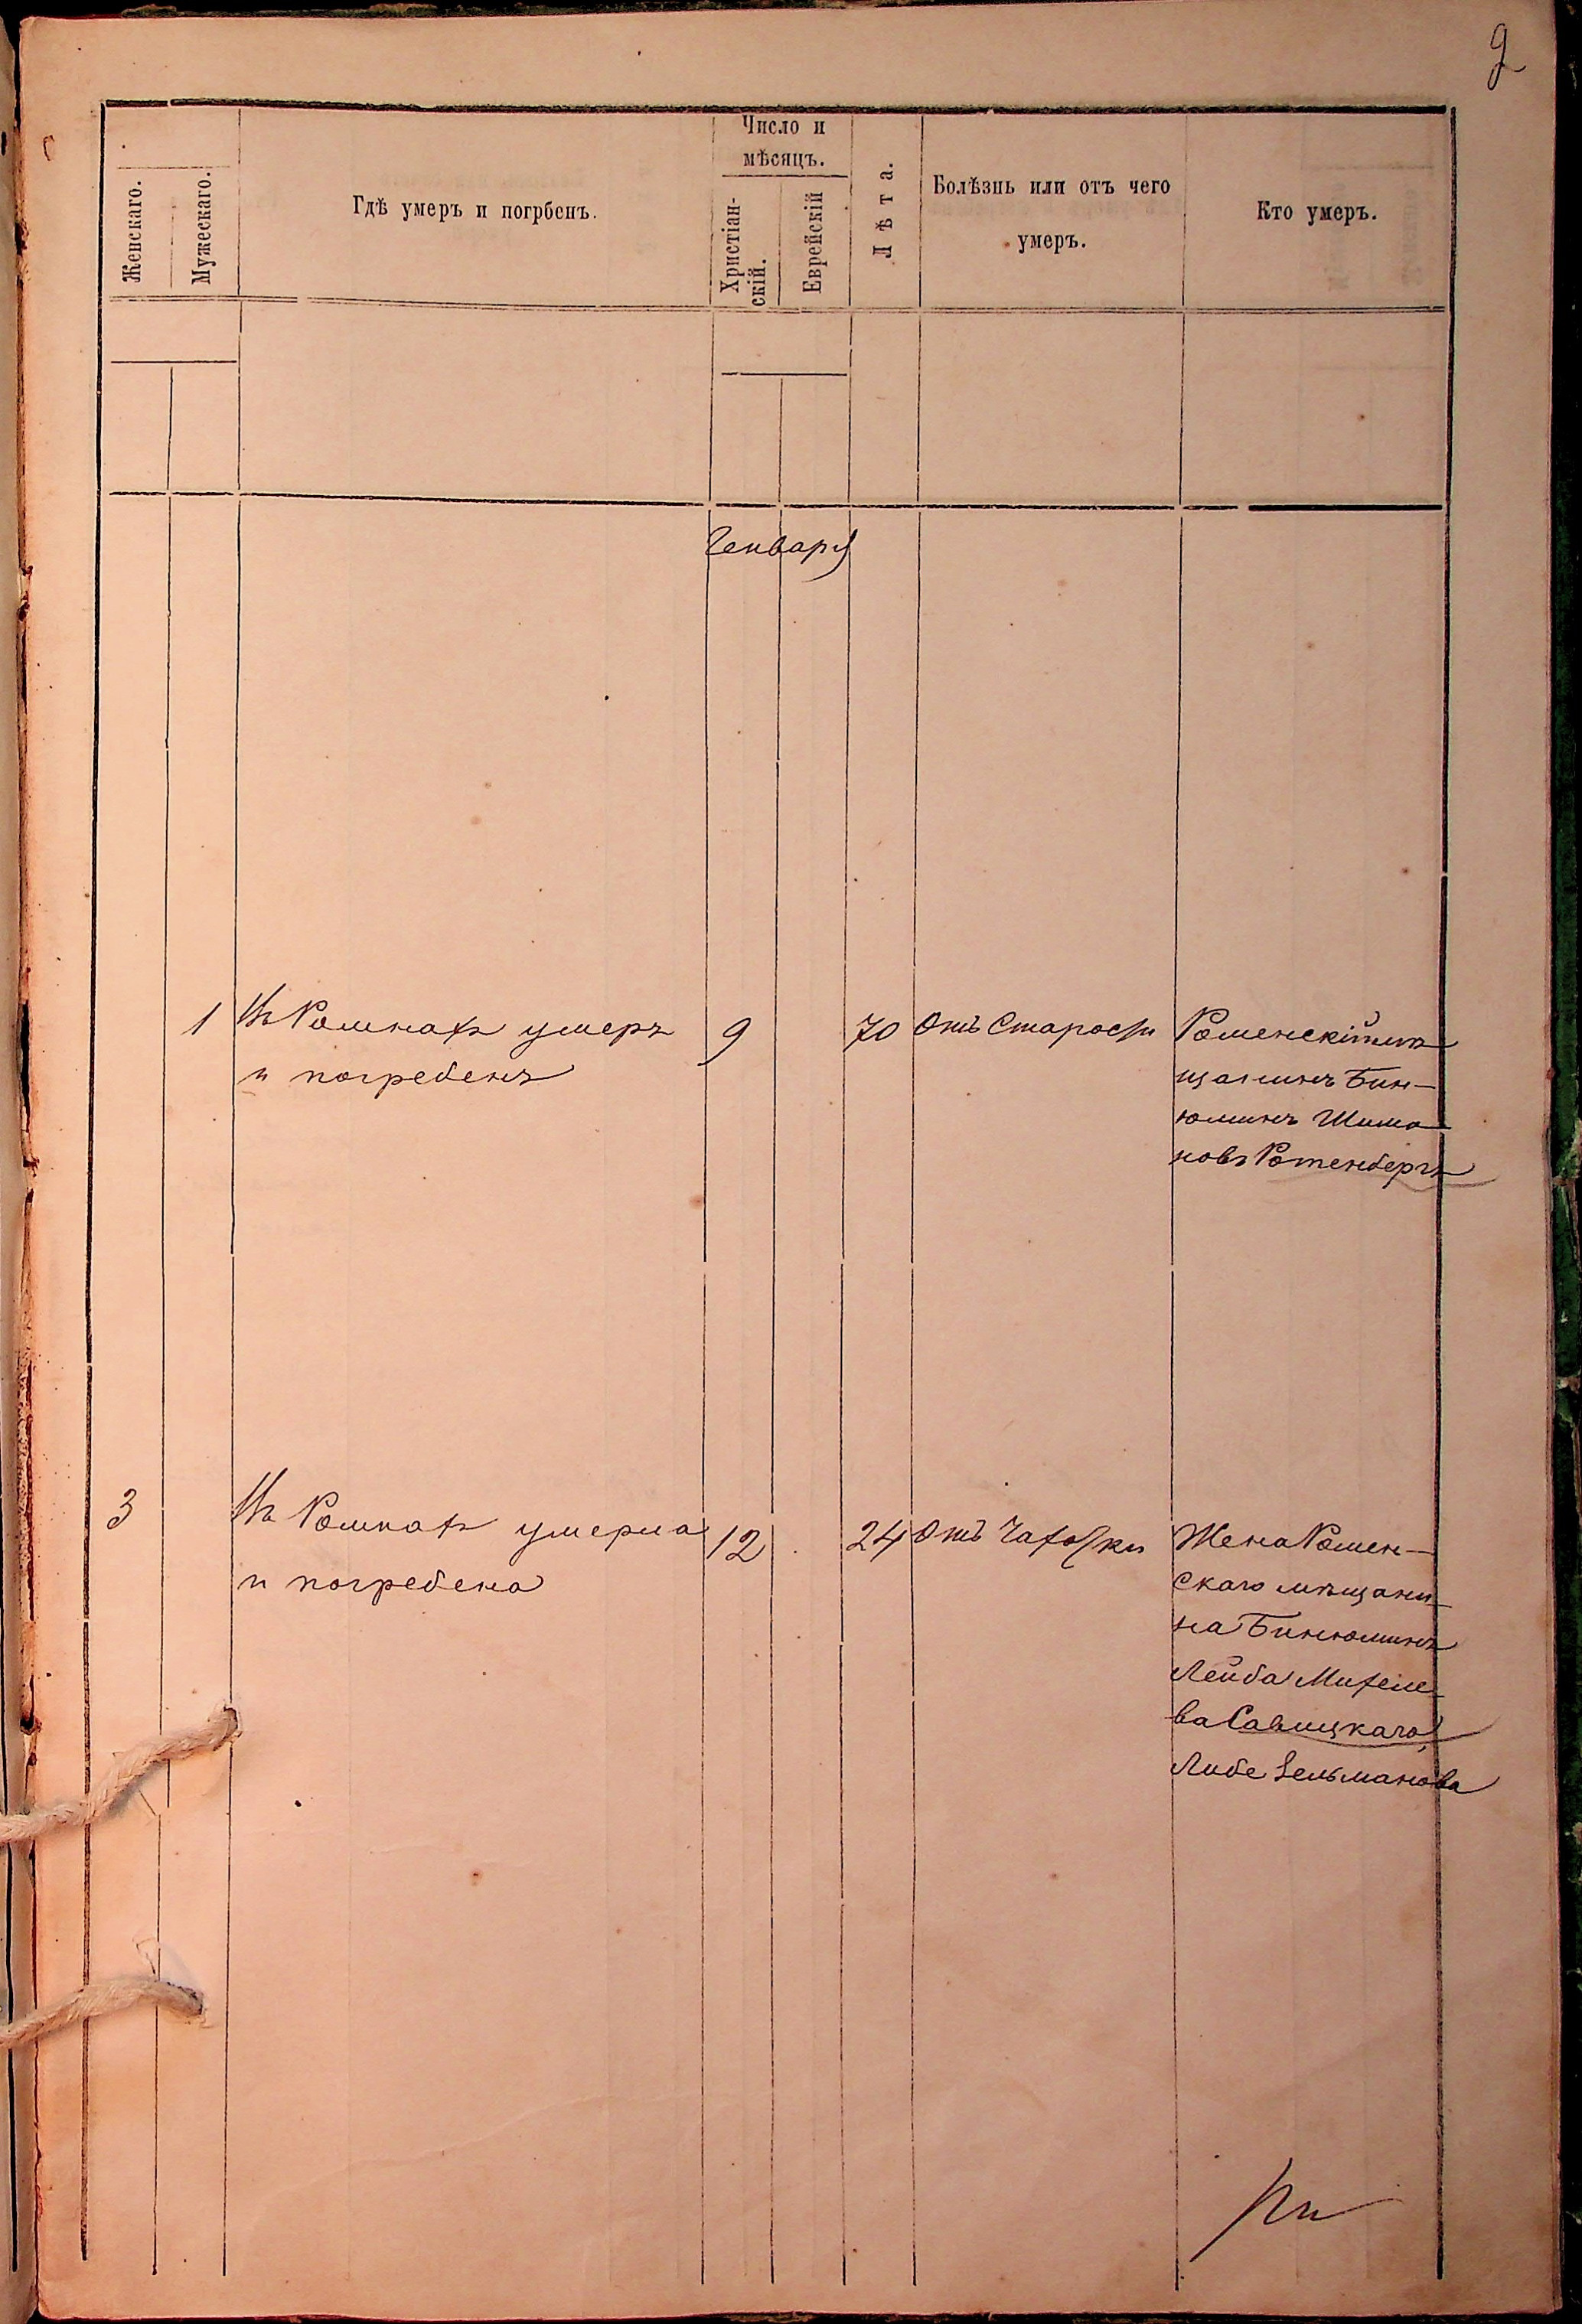 2
Число и
мѣсяцъ.
Женскаго.
Мужескаго.
Гдѣ умеръ и погрбенъ.
Христіан-
скій.
Еврейскій
Лѣта.
Болѣзнь или отъ чего
умеръ.
Кто умеръ.
Генваря
1
Въ Ромнахъ умеръ
и погребенъ
9
70
Отъ Старости
Роменскій мѣ
щанинъ Бин-
юминъ Шимо
новъ Ротенбергъ
3
Въ Ромнахъ умерла
и погребена
12
24
Отъ Чахотки
Жена Ромен-
скаго мѣщани-
на Бинюминъ
Лейба Михеле-
ва Савицкаго,
Либе Зельманова